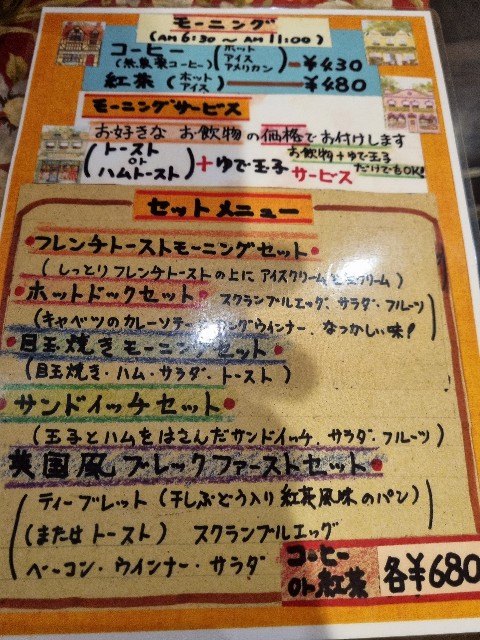 モーニング
(AM 6:30 ～ AM 11:00)
コーヒー (ホット アイス アメリカン) ¥430
(炭火コーヒー)
紅茶 (ホット アイス) ¥480
モーニングサービス
お好きな お飲物の価格でお付けします
(トースト or ハムトースト) + ゆで玉子 サービス
お飲物+ゆで玉子だけでもOK!
セットメニュー
・フレンチトーストモーニングセット・
(しっとりフレンチトーストの上にアイスクリームと生クリーム)
・ホットドックセット・ スクランブルエッグ、サラダ・フルーツ
(キャベツのカレーソテー ウインナー、なつかしい味!)
・目玉焼きモーニングセット・
(目玉焼き・ハム・サラダ、トースト)
・サンドイッチセット・
(玉子とハムをはさんだサンドイッチ、サラダ・フルーツ)
英国風ブレックファーストセット・
ティーブレット (干しぶどう入り紅茶風味のパン)
(またはトースト) スクランブルエッグ
ベーコン・ウインナー・サラダ
コーヒー or 紅茶 各¥680